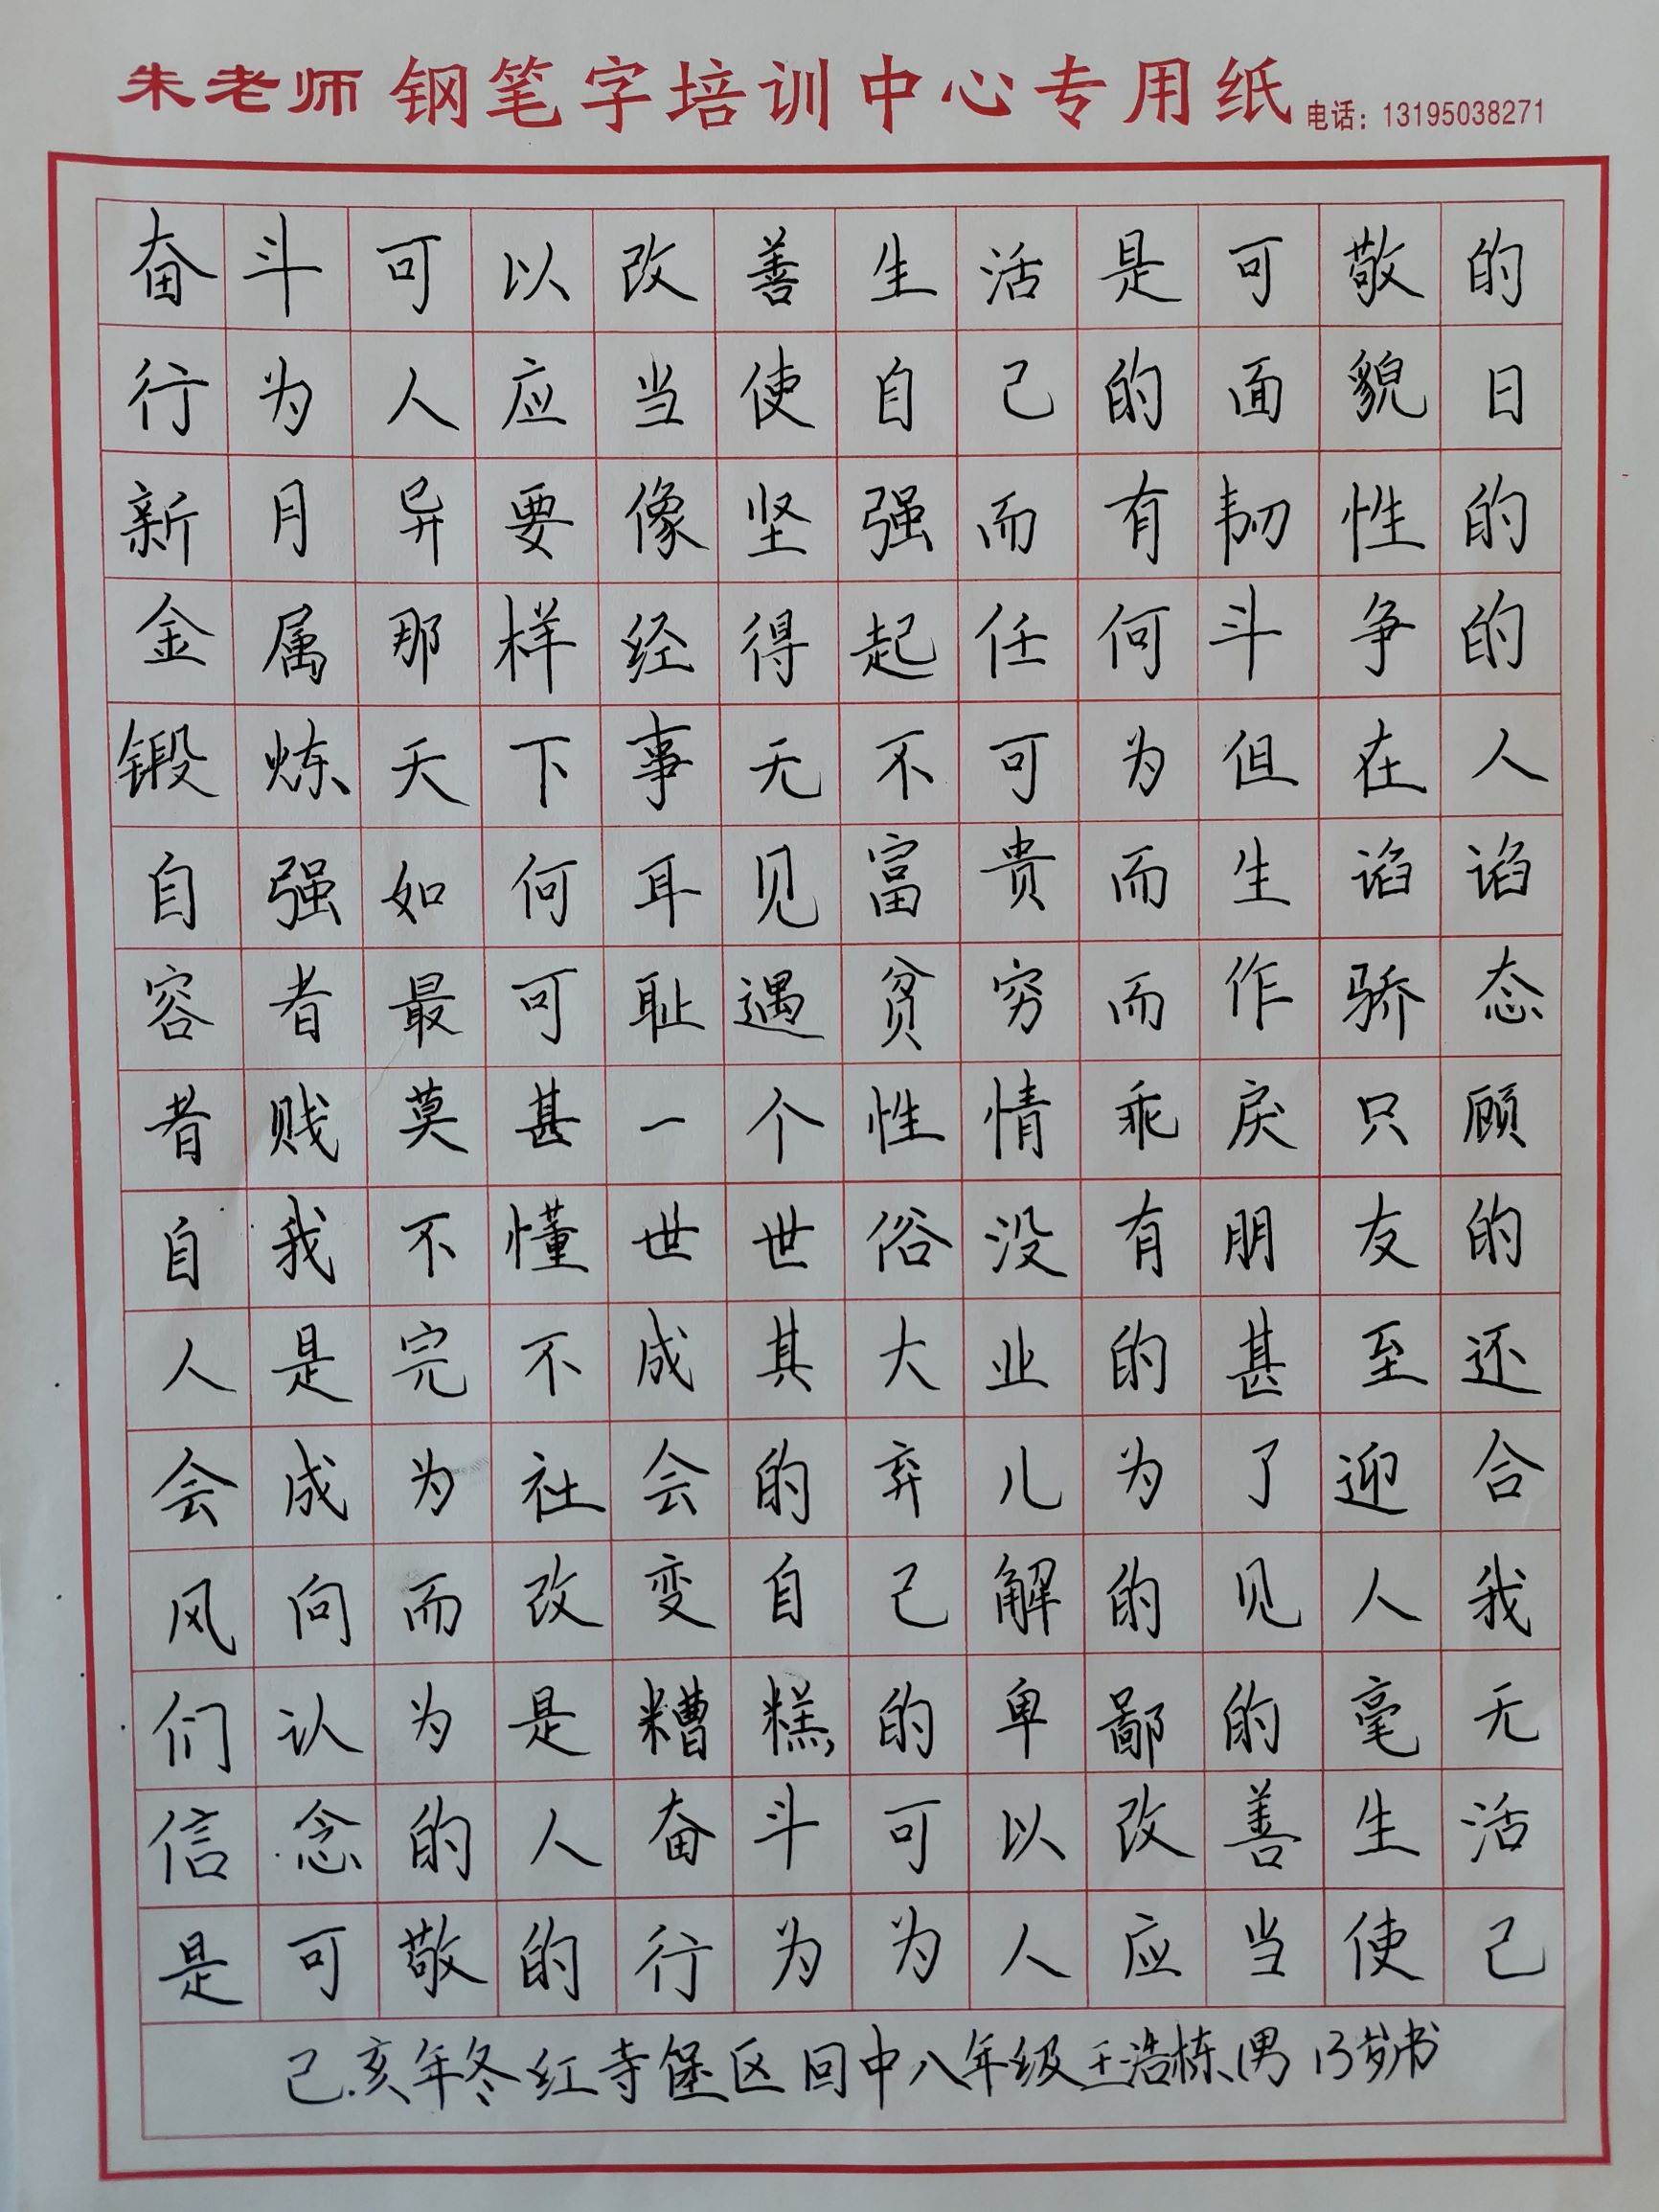 朱老师 钢笔字培训中心专用纸 电话：13195038271
奋斗可以改善生活是可敬的
行为人应当使自己的面貌日
新月异要像坚强而有韧性的
金属那样经得起任何斗争的
锻炼天下事无不可为但在人
自强如何耳见富贵而生谄谄
容者最可耻遇贫穷而作骄态
者贱莫甚一个性情乖戾只顾
自我不懂世世俗没有朋友的
人是完不成其大业的甚至还
会成为社会的弃儿为了迎合
风向而改变自己解的见人我
们认为是糟糕的卑鄙的毫无
信念的人奋斗可以改善生活
是可敬的行为为人应当使己
己亥年冬红寺堡区回中八年级王浩栋(男 13岁书